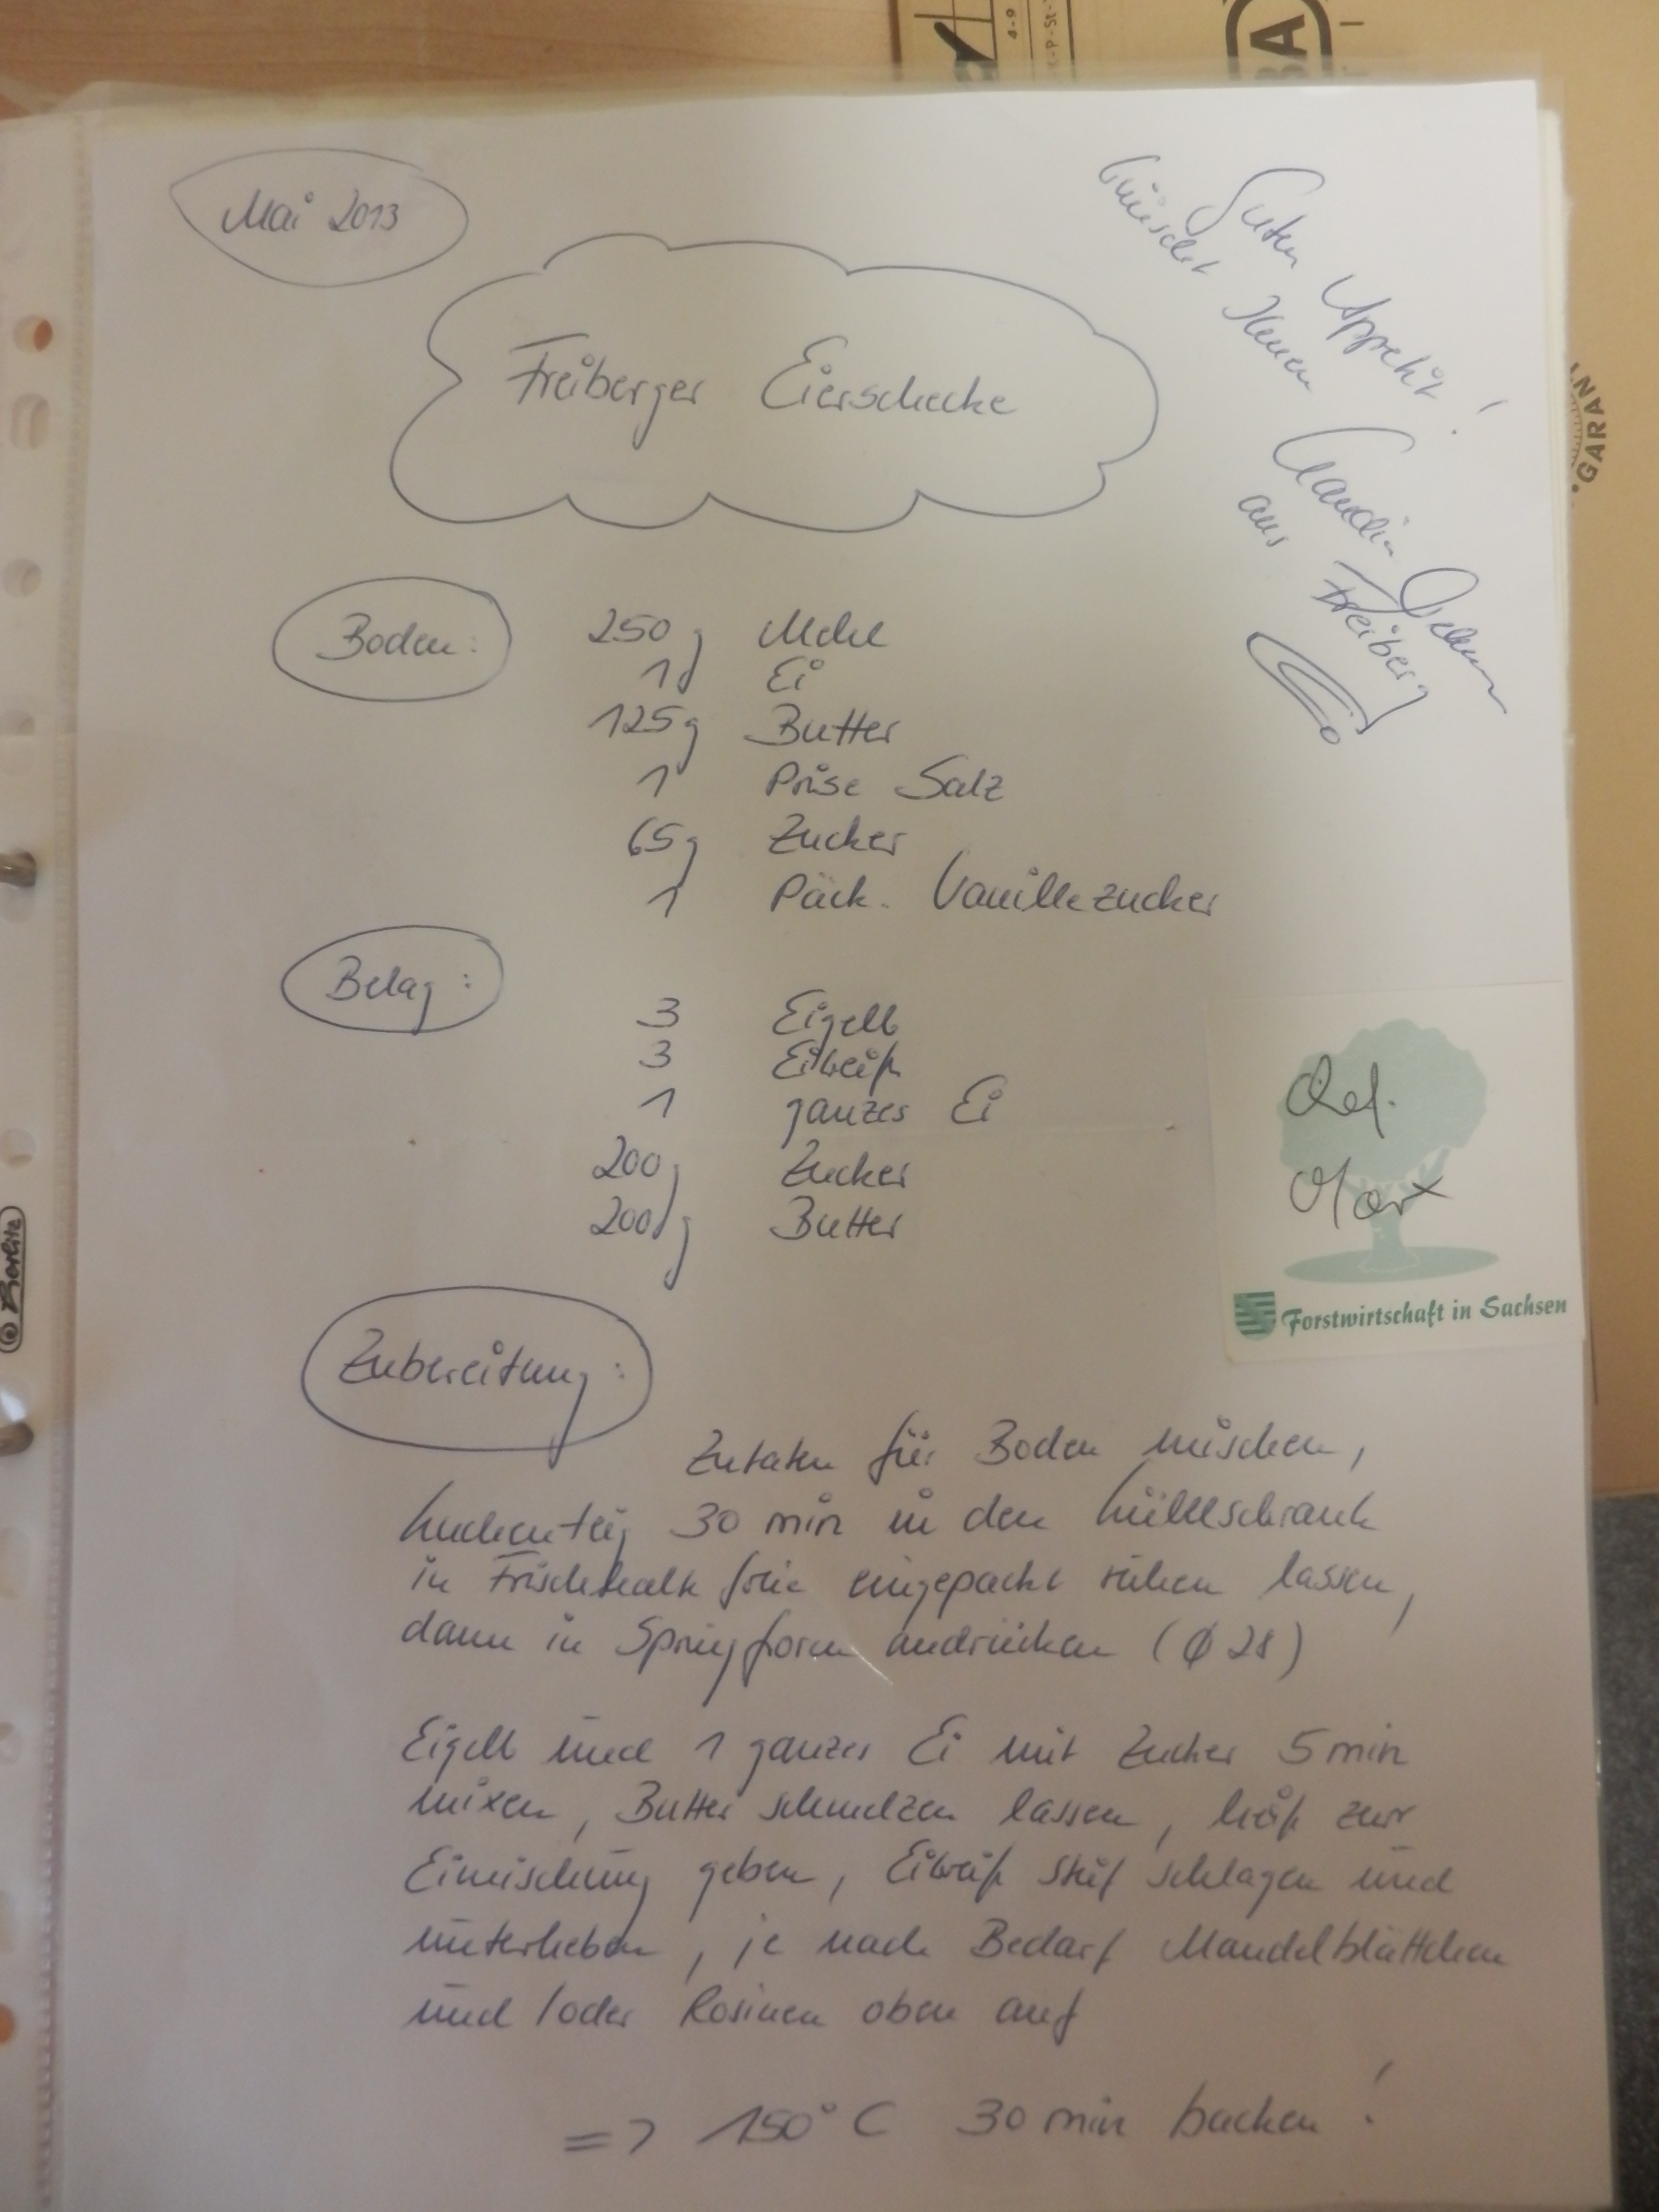 Mai 2013
Guten Appetit!
wünscht Ihnen
aus Freiberg
Freiberger Eierschecke
Boden:
250 g Mehl
1 Ei
125 g Butter
1 Prise Salz
65 g Zucker
1 Päck. Vanillezucker
Belag:
3 Eigelb
3 Eiweiß
1 ganzes Ei
200 g Zucker
200 g Butter
Forstwirtschaft in Sachsen
Zubereitung:
Zutaten für Boden mischen,
Kuchenteig 30 min in den Kühlschrank
in Frischhaltefolie eingepackt ruhen lassen,
dann in Springform andrücken (Ø 28)
Eigelb und 1 ganzes Ei mit Zucker 5 min
mixen, Butter schmelzen lassen, heiß zur
Eimischung geben, Eiweiß steif schlagen und
unterheben, je nach Bedarf Mandelblättchen
und/oder Rosinen oben auf
=> 150°C 30 min backen!
GARANT